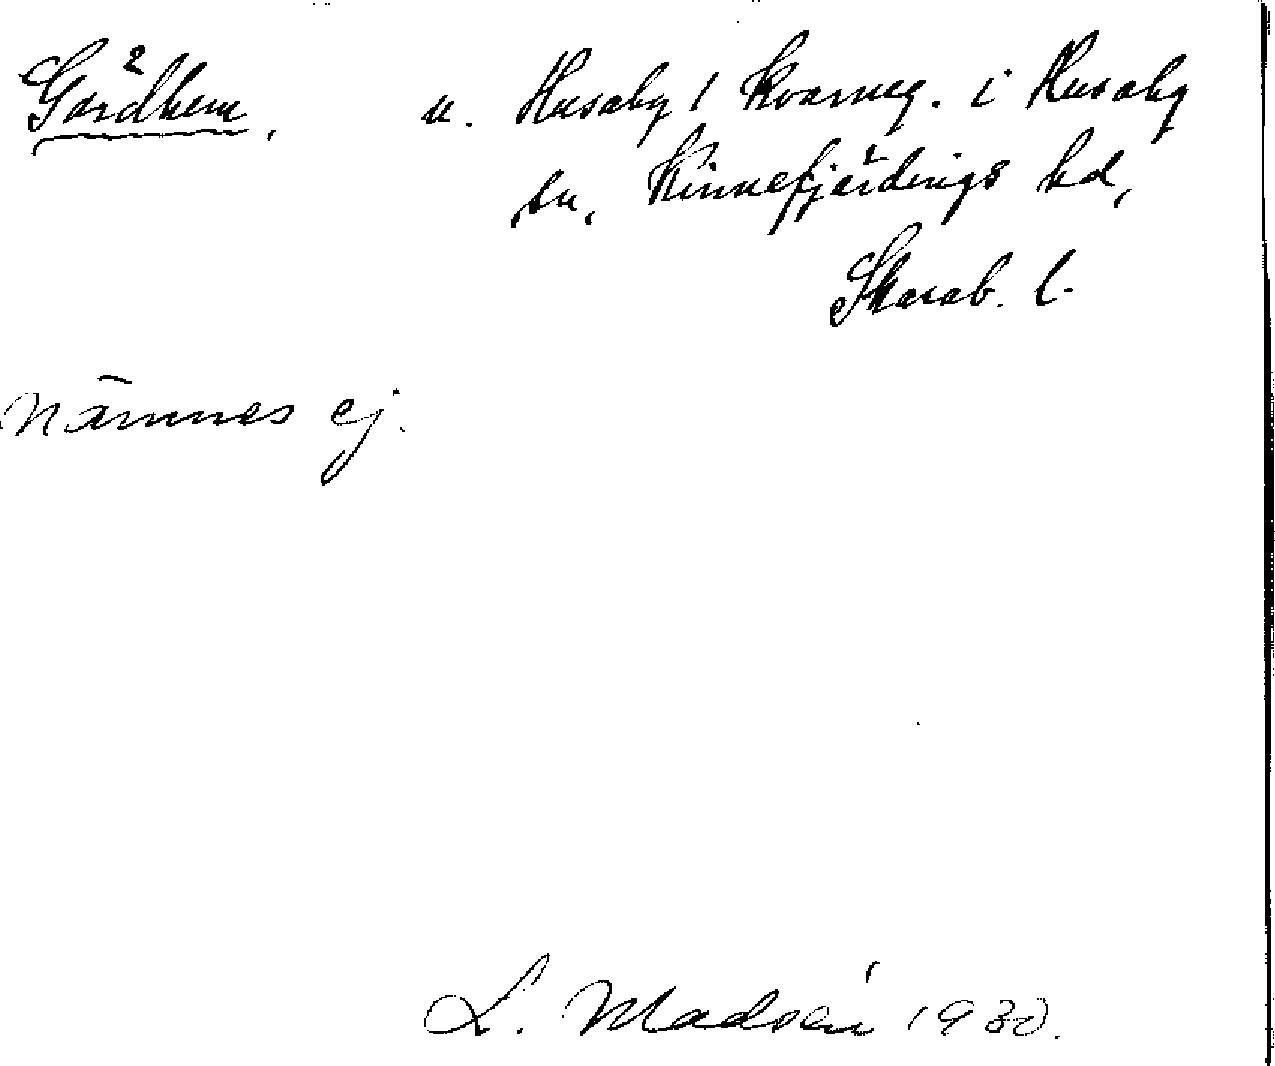 Gärdhem, u. Husaby 1 Kvarneg. i Husaby
sn, Kinnefjärdings hd,
Skarab. l.
Nämnes ej.
L. Madsén 1930.